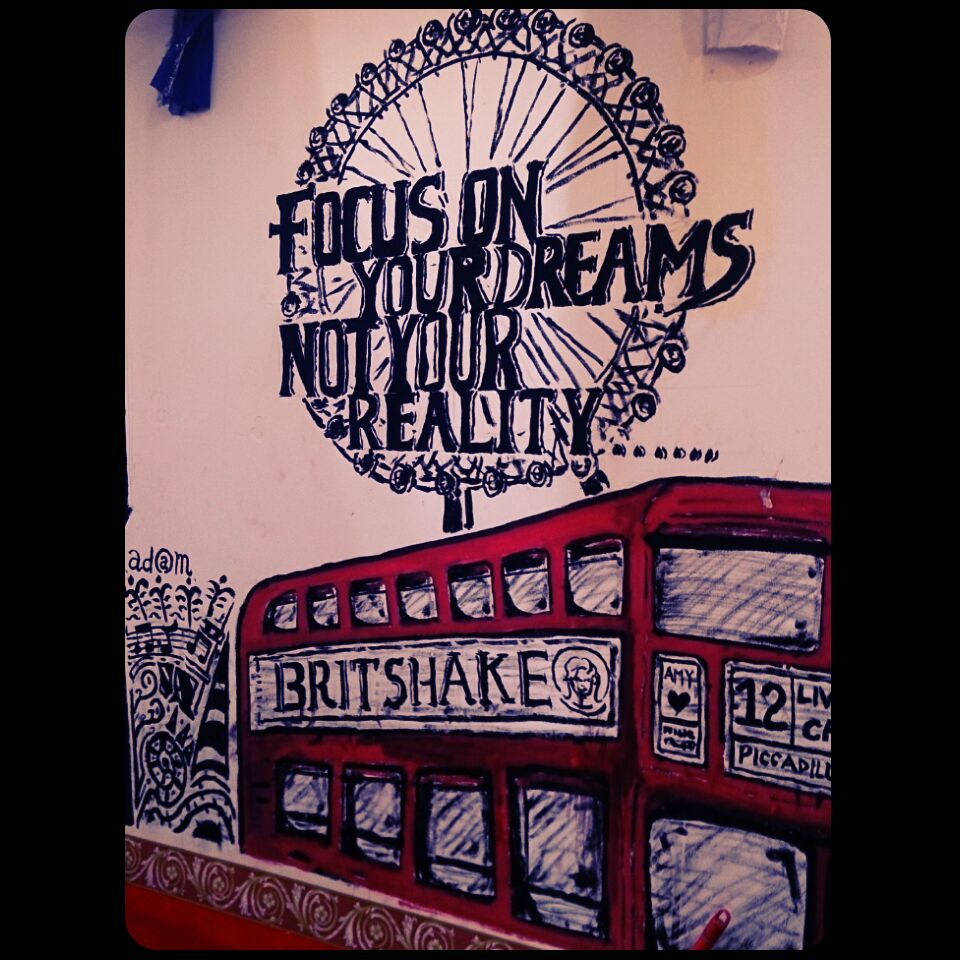 FOCUS ON
YOUR DREAMS
NOT YOUR
REALITY
ad@m
BRITSHAKE
AMY
12
LIV
PICCADILL